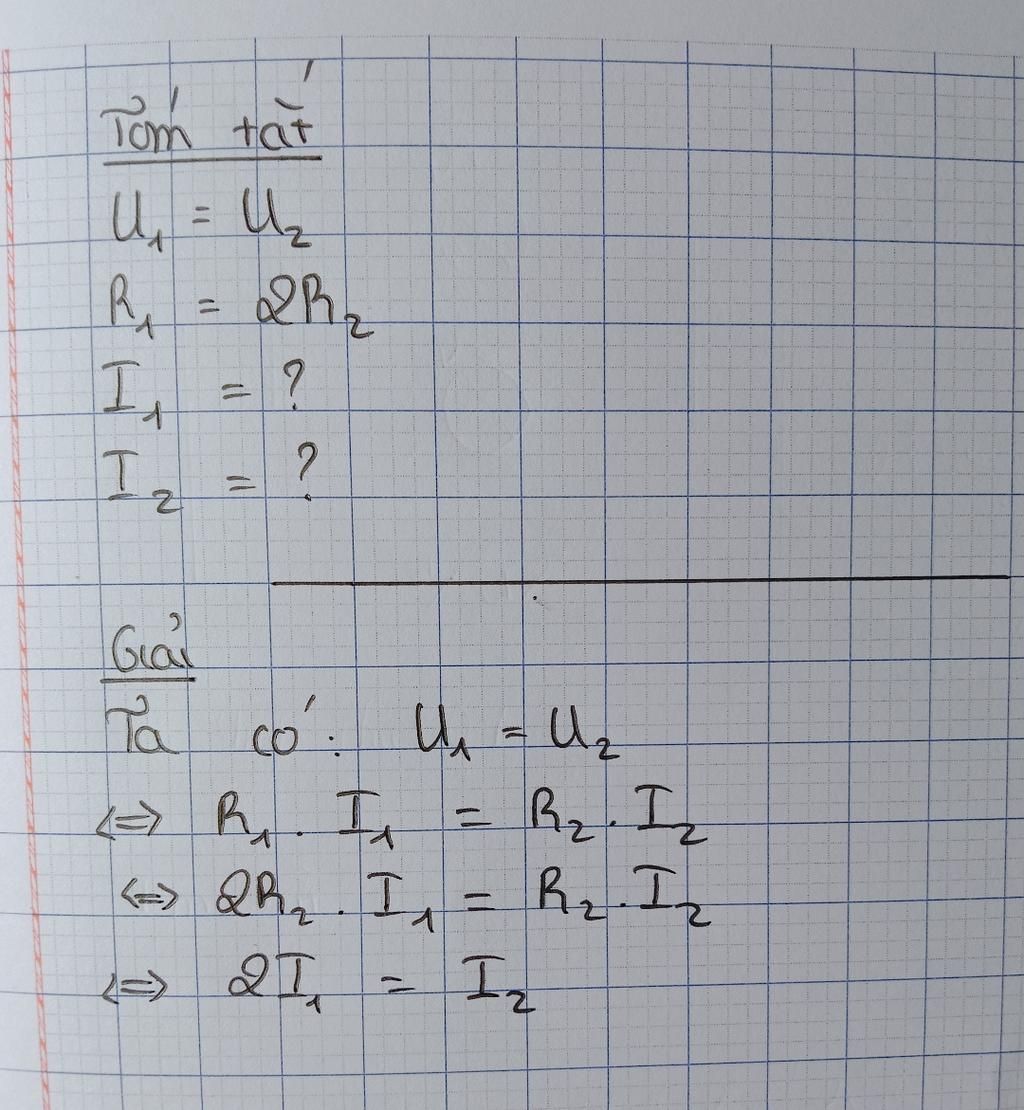 Tóm tắt
U₁ = U₂
R₁ = 2R₂
I₁ = ?
I₂ = ?
Giải
Ta có: U₁ = U₂
<=> R₁ . I₁ = R₂ . I₂
<=> 2R₂ . I₁ = R₂ . I₂
<=> 2I₁ = I₂